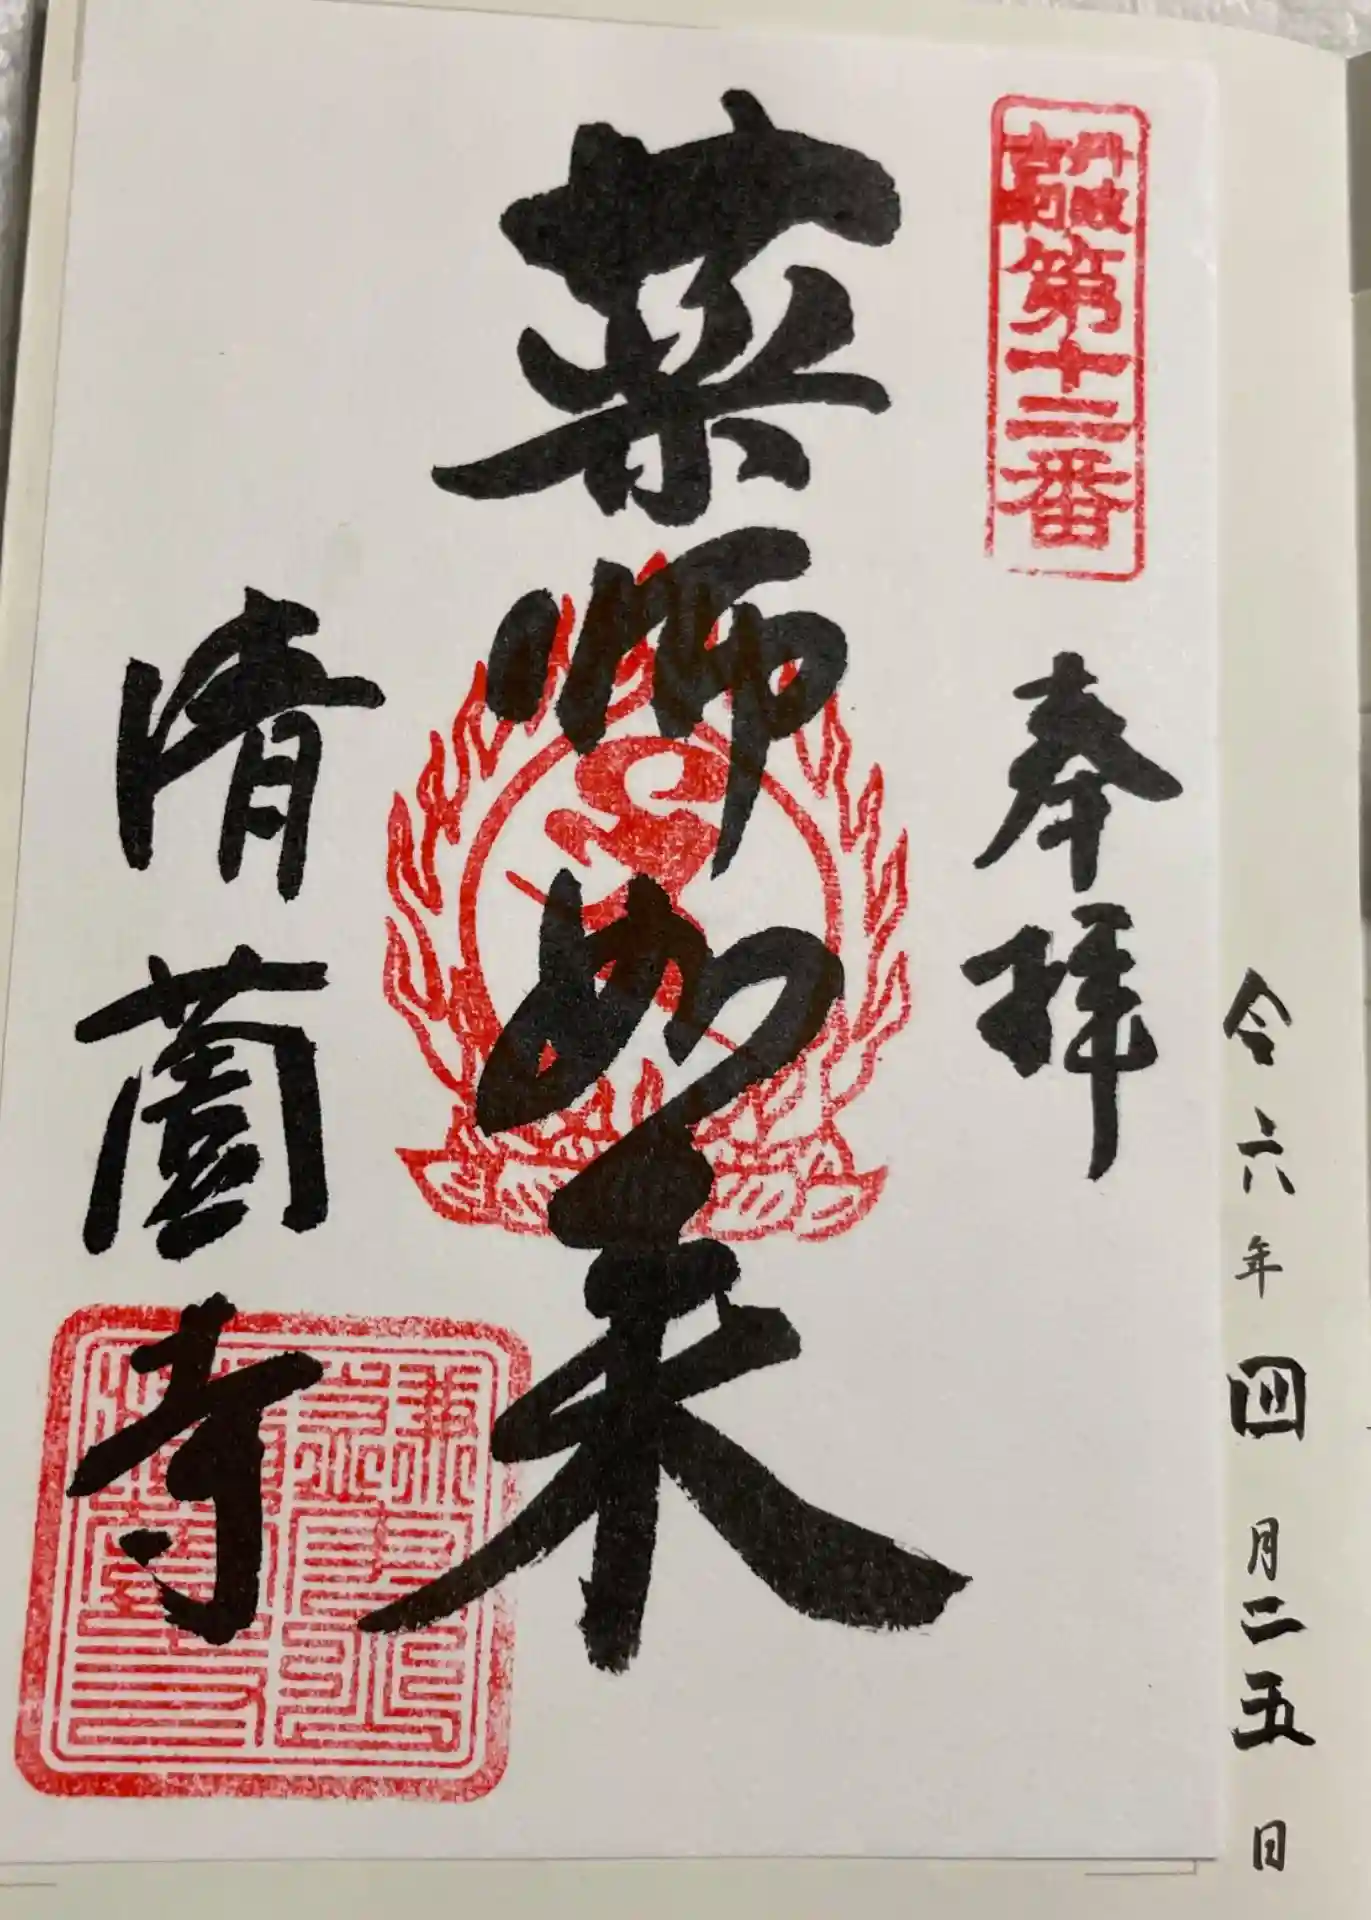 丹波
古刹
第十二番
奉拝
薬師如来
清薗寺
令六年四月二五日